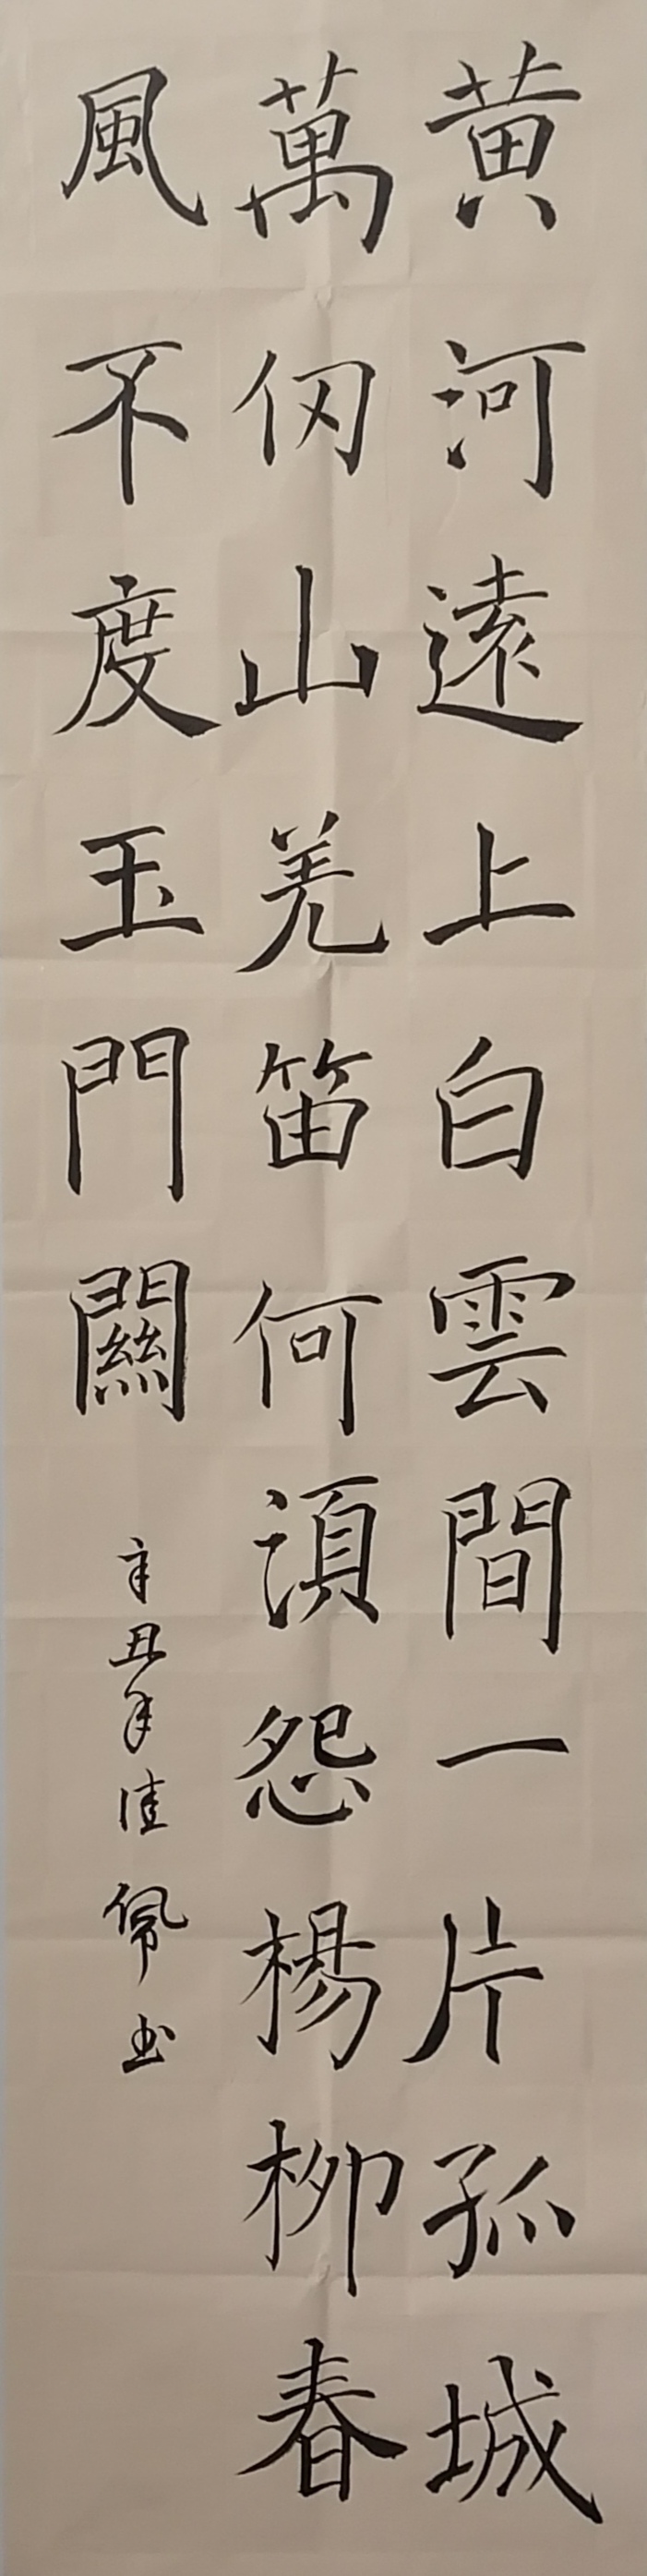 黄河遠上白雲間一片孤城
萬仞山羌笛何須怨楊柳春
風不度玉門關
辛丑年佳佩书